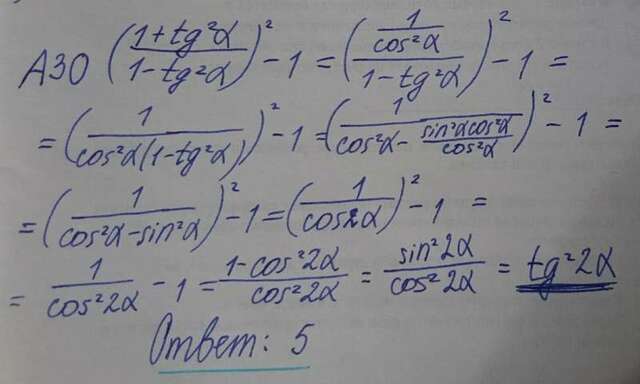 А30 ((1+tg²α)/(1-tg²α))² - 1 = ((1/cos²α)/(1-tg²α))² - 1 =
= (1/(cos²α(1-tg²α)))² - 1 = (1/(cos²α - (sin²αcos²α)/(cos²α)))² - 1 =
= (1/(cos²α-sin²α))² - 1 = (1/(cos2α))² - 1 =
= 1/(cos²2α) - 1 = (1-cos²2α)/(cos²2α) = (sin²2α)/(cos²2α) = tg²2α
Ответ: 5